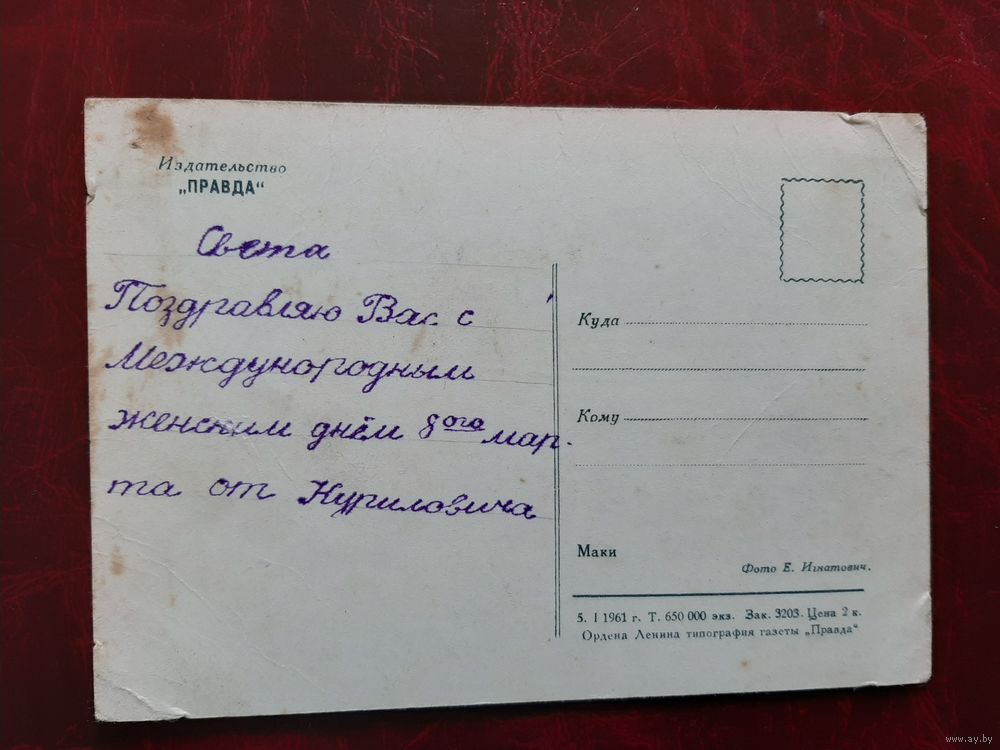 Издательство
„ПРАВДА“
Света
Поздравляю Вас с
Международным
женским днём 8ого мар-
та от Куриловича
Куда
Кому
Маки
Фото Е. Игнатович.
5. I 1961 г. Т. 650 000 экз. Зак. 3203. Цена 2 к.
Ордена Ленина типография газеты „Правда“
www.ay.by